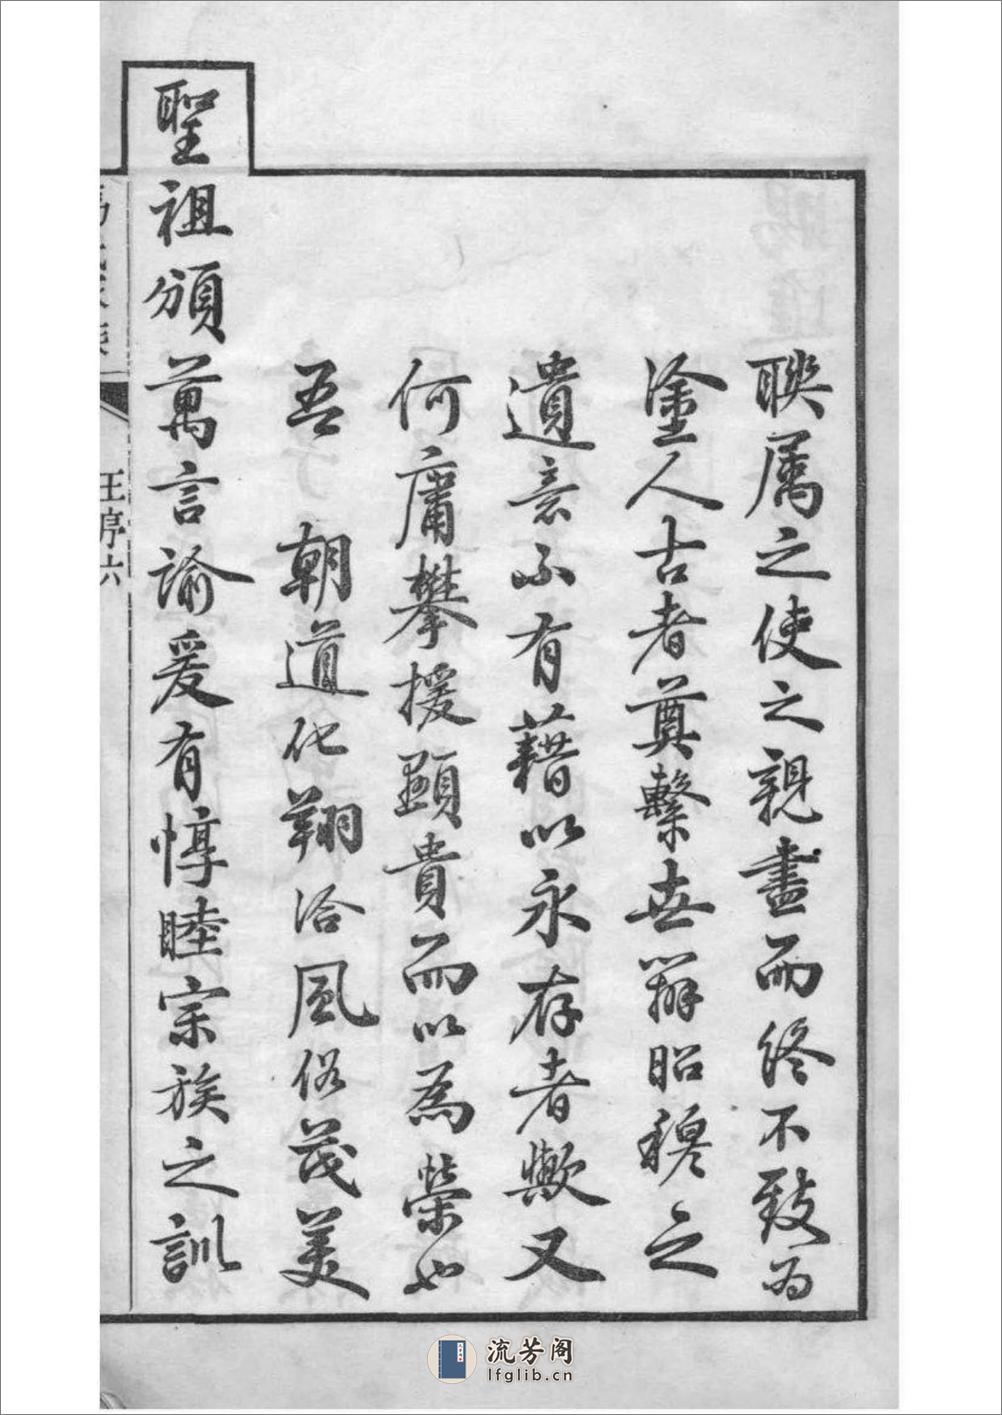 聯属之使之親盡而終不致為
塗人古者奠繫世辨昭穆之
遺意不有藉以永存者歟又
何庸攀援顯貴而以為榮也
吾　朝道化翔洽風俗茂美
聖祖頒萬言諭爰有惇睦宗族之訓
王序六
流芳阁
lfglib.cn